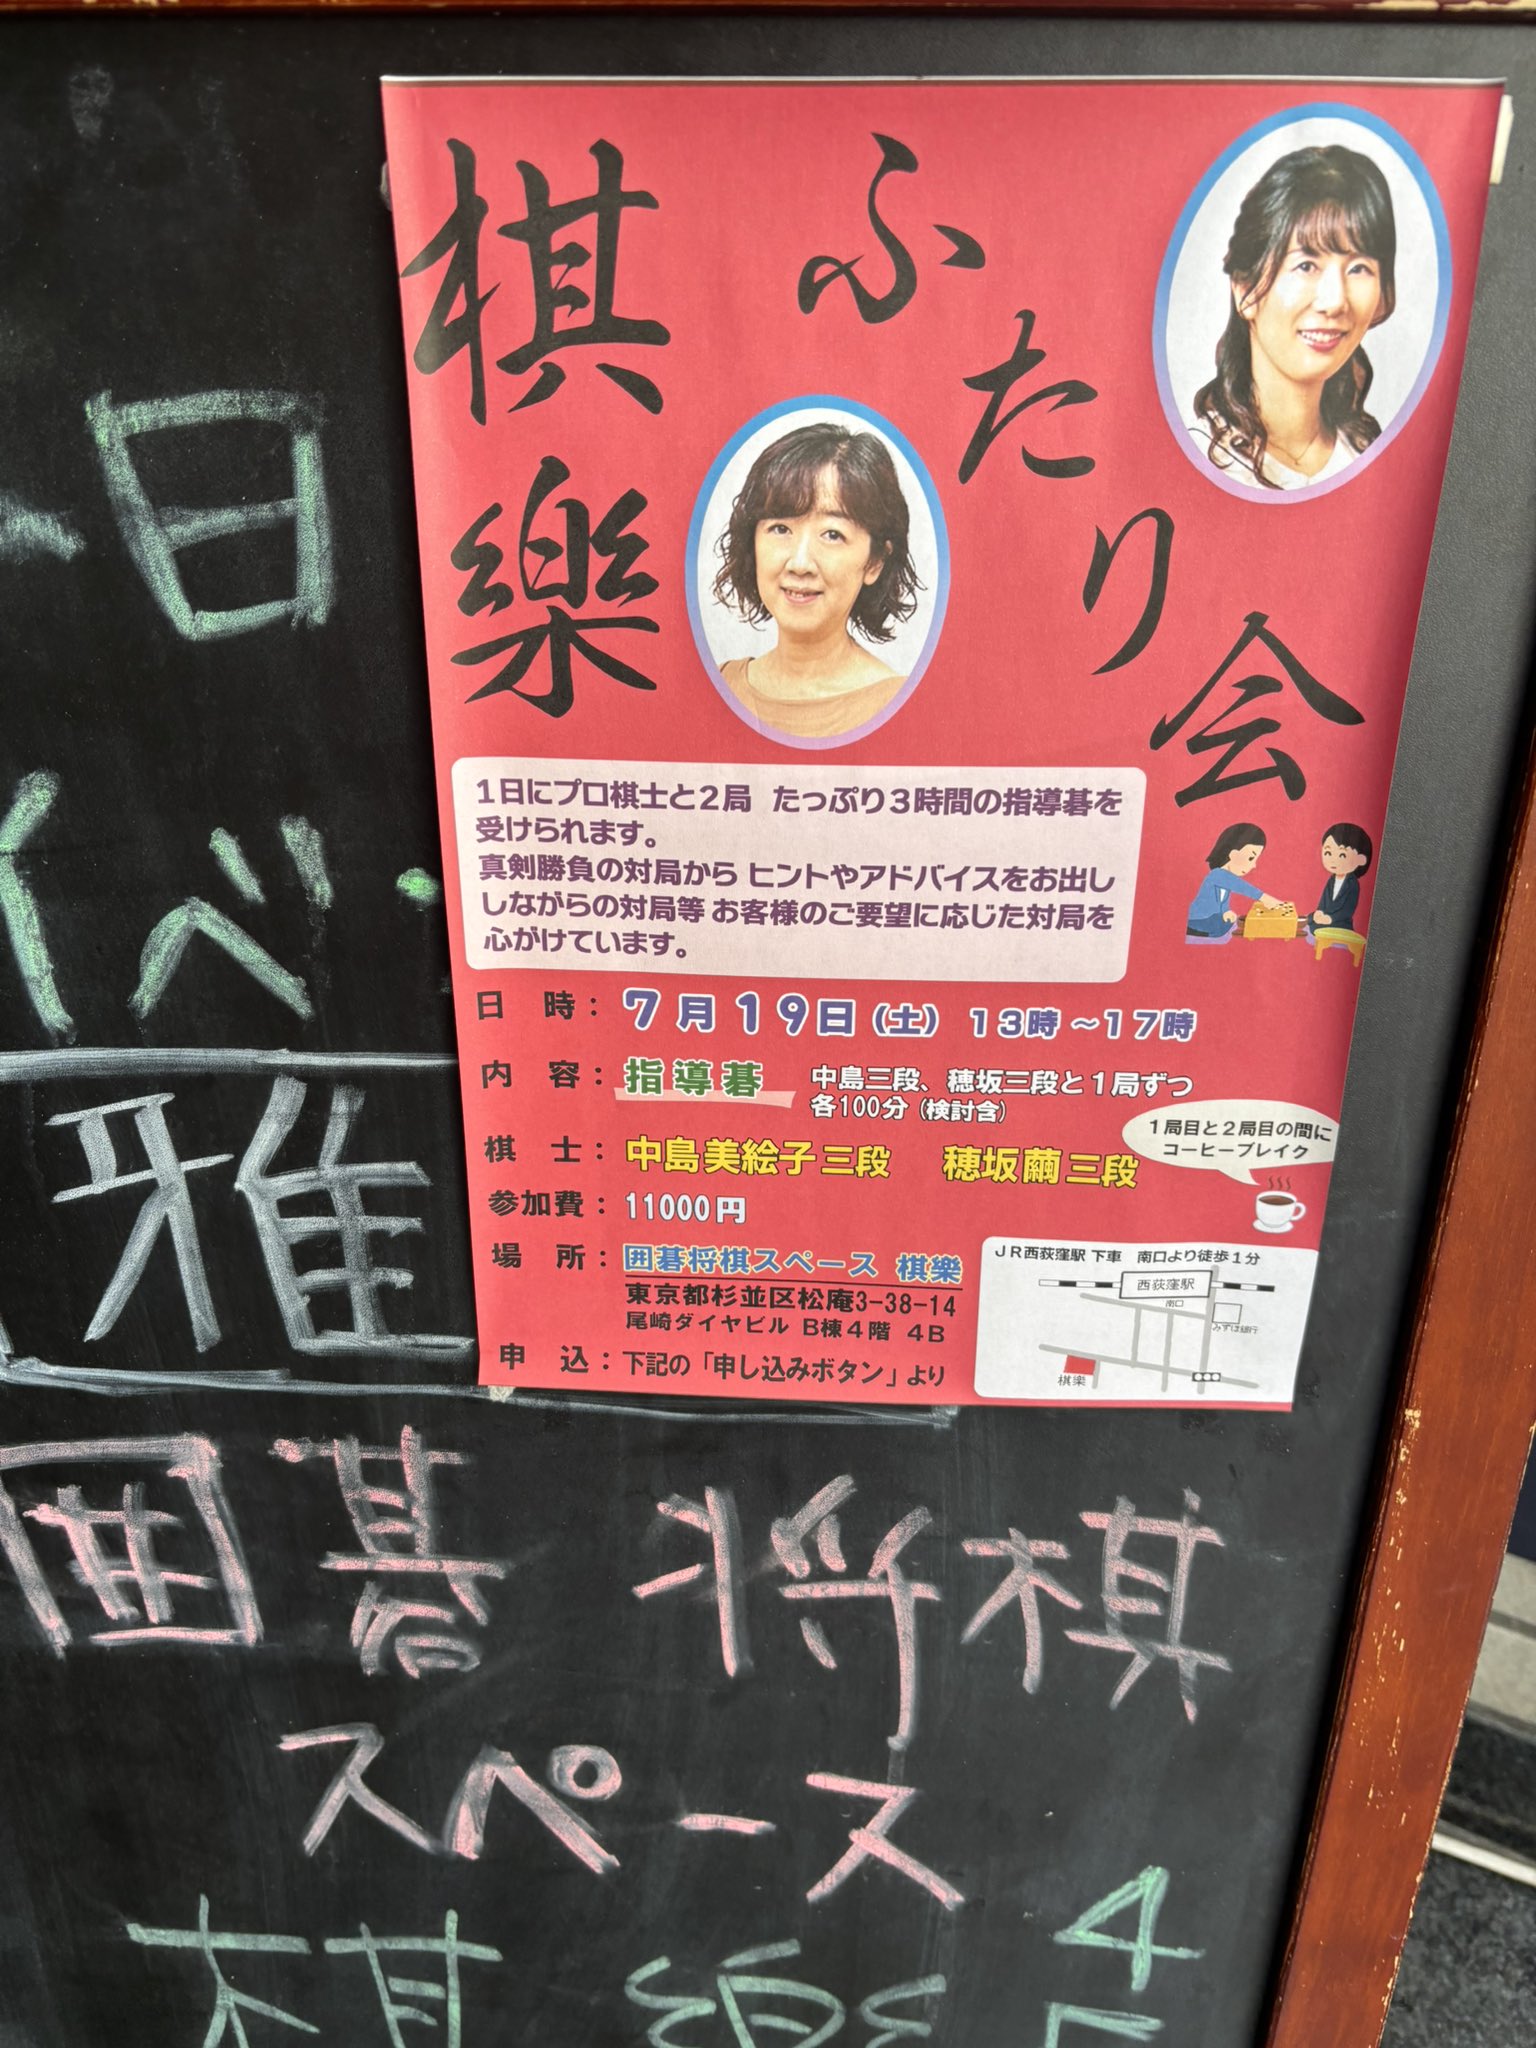 棋樂
ふたり会
1日にプロ棋士と2局 たっぷり3時間の指導碁を
受けられます。
真剣勝負の対局から ヒントやアドバイスをお出し
しながらの対局等 お客様のご要望に応じた対局を
心がけています。
日時：7月19日(土) 13時～17時
内容：指導碁 中島三段、穂坂三段と1局ずつ
各100分(検討含)
1局目と2局目の間に
コーヒーブレイク
棋士：中島美絵子三段 穂坂繭三段
参加費：11000円
場所：囲碁将棋スペース 棋樂
東京都杉並区松庵3-38-14
尾崎ダイヤビル B棟4階 4B
申込：下記の「申し込みボタン」より
JR西荻窪駅 下車 南口より徒歩1分
西荻窪駅
南口
みずほ銀行
棋樂
日
イベ
雅
囲碁 将棋
スペース
棋樂 4F